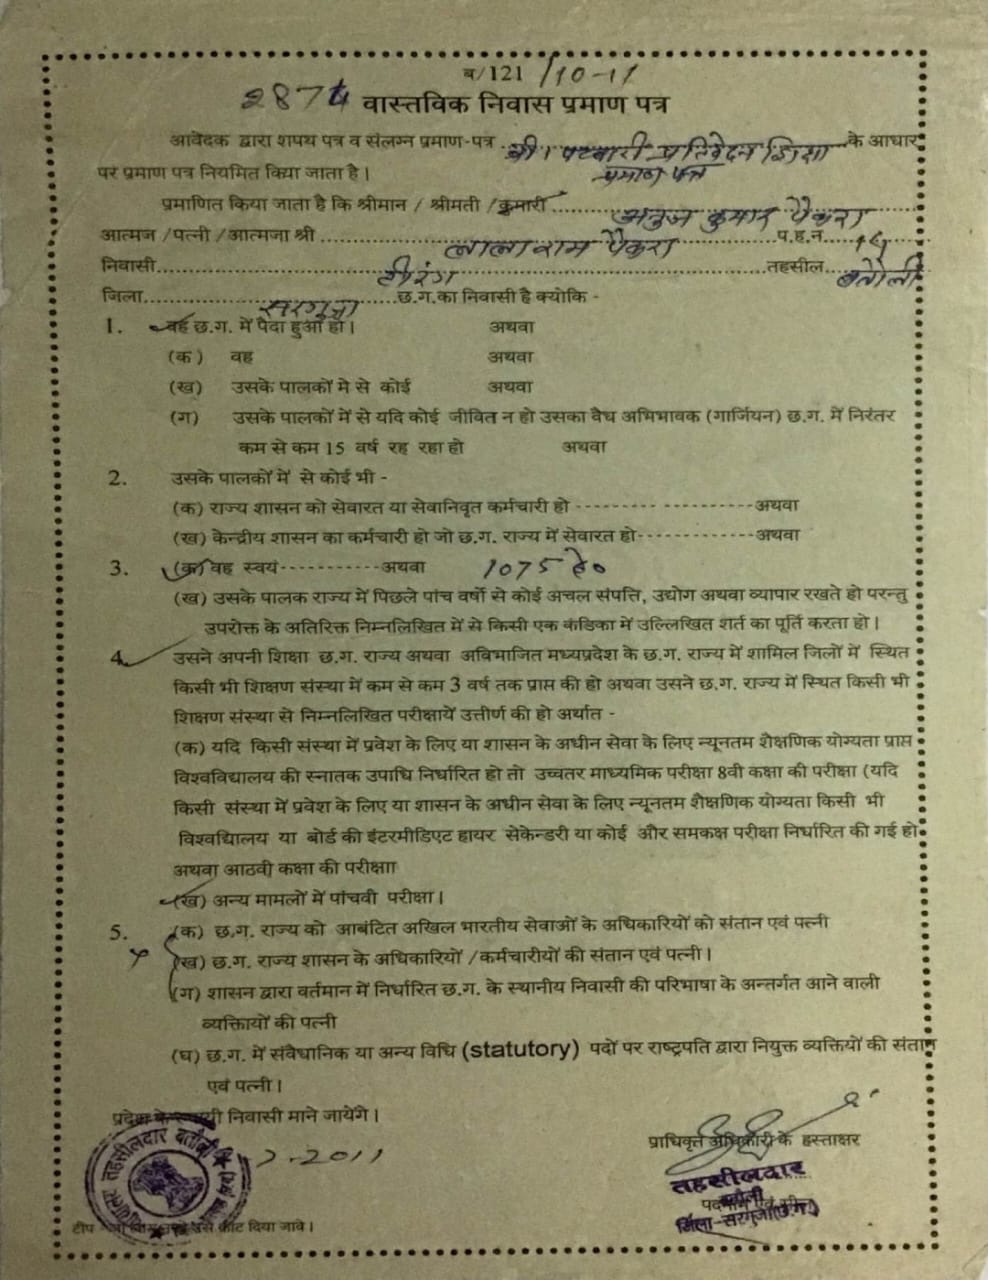 ब/121 /10-11
2874 वास्तविक निवास प्रमाण पत्र
आवेदक द्वारा शपथ पत्र व संलग्न प्रमाण-पत्र श्री। पटवारी प्रतिवेदन शिक्षा के आधार
प्रमाण पत्र
पर प्रमाण पत्र नियमित किया जाता है।
प्रमाणित किया जाता है कि श्रीमान / श्रीमती / कुमारी अनुज कुमार पैकरा
आत्मज /पत्नी /आत्मजा श्री लालाराम पैकरा प.ह.न. 14
निवासी टीरंग तहसील बतौली
जिला सरगुजा छ.ग.का निवासी है क्योकि -
1. वह छ.ग. में पैदा हुआ हो। अथवा
(क) वह अथवा
(ख) उसके पालकों मे से कोई अथवा
(ग) उसके पालकों में से यदि कोई जीवित न हो उसका वैध अभिभावक (गार्जियन) छ.ग. में निरंतर
कम से कम 15 वर्ष रह रहा हो अथवा
2. उसके पालकों में से कोई भी -
(क) राज्य शासन को सेवारत या सेवानिवृत कर्मचारी हो --------- ----------- अथवा
(ख) केन्द्रीय शासन का कर्मचारी हो जो छ.ग. राज्य में सेवारत हो-------------अथवा
3. (क) वह स्वयं-----------अथवा 1075 हे०
(ख) उसके पालक राज्य में पिछले पांच वर्षो से कोई अचल संपत्ति, उद्योग अथवा व्यापार रखते हो परन्तु
उपरोक्त के अतिरिक्त निम्नलिखित में से किसी एक कंडिका में उल्लिखित शर्त का पूर्ति करता हो।
4. उसने अपनी शिक्षा छ.ग. राज्य अथवा अविभाजित मध्यप्रदेश के छ.ग. राज्य में शामिल जिलों में स्थित
किसी भी शिक्षण संस्था में कम से कम 3 वर्ष तक प्राप्त की हो अथवा उसने छ.ग. राज्य में स्थित किसी भी
शिक्षण संस्था से निम्नलिखित परीक्षायें उत्तीर्ण की हो अर्थात -
(क) यदि किसी संस्था में प्रवेश के लिए या शासन के अधीन सेवा के लिए न्यूनतम शैक्षणिक योग्यता प्राप्त
विश्वविद्यालय की स्नातक उपाधि निर्धारित हो तो उच्चतर माध्यमिक परीक्षा 8वी कक्षा की परीक्षा (यदि
किसी संस्था में प्रवेश के लिए या शासन के अधीन सेवा के लिए न्यूनतम शैक्षणिक योग्यता किसी भी
विश्वद्यिालय या बोर्ड की इंटरमीडिएट हायर सेकेन्डरी या कोई और समकक्ष परीक्षा निर्धारित की गई हो
अथवा आठवी कक्षा की परीक्षाा
(ख) अन्य मामलों में पांचवी परीक्षा।
5. (क) छ.ग. राज्य को आबंटित अखिल भारतीय सेवाओं के अधिकारियों को संतान एवं पत्नी
(ख) छ.ग. राज्य शासन के अधिकारियों /कर्मचारीयों की संतान एवं पत्नी।
(ग) शासन द्वारा वर्तमान में निर्धारित छ.ग. के स्थानीय निवासी की परिभाषा के अन्तर्गत आने वाली
व्यक्तिायों की पत्नी
(घ) छ.ग. में संवैधानिक या अन्य विधि (statutory) पदों पर राष्ट्रपति द्वारा नियुक्त व्यक्तियों की संतान
एवं पत्नी।
प्रदेश के स्थायी निवासी माने जायेगें।
प्राधिकृत अधिकारी के हस्ताक्षर
2011
तहसीलदार बतौली
तहसीलदार
बतौली
जिला-सरगुजा(छ.ग.)
टीप उसे काट दिया जावे।